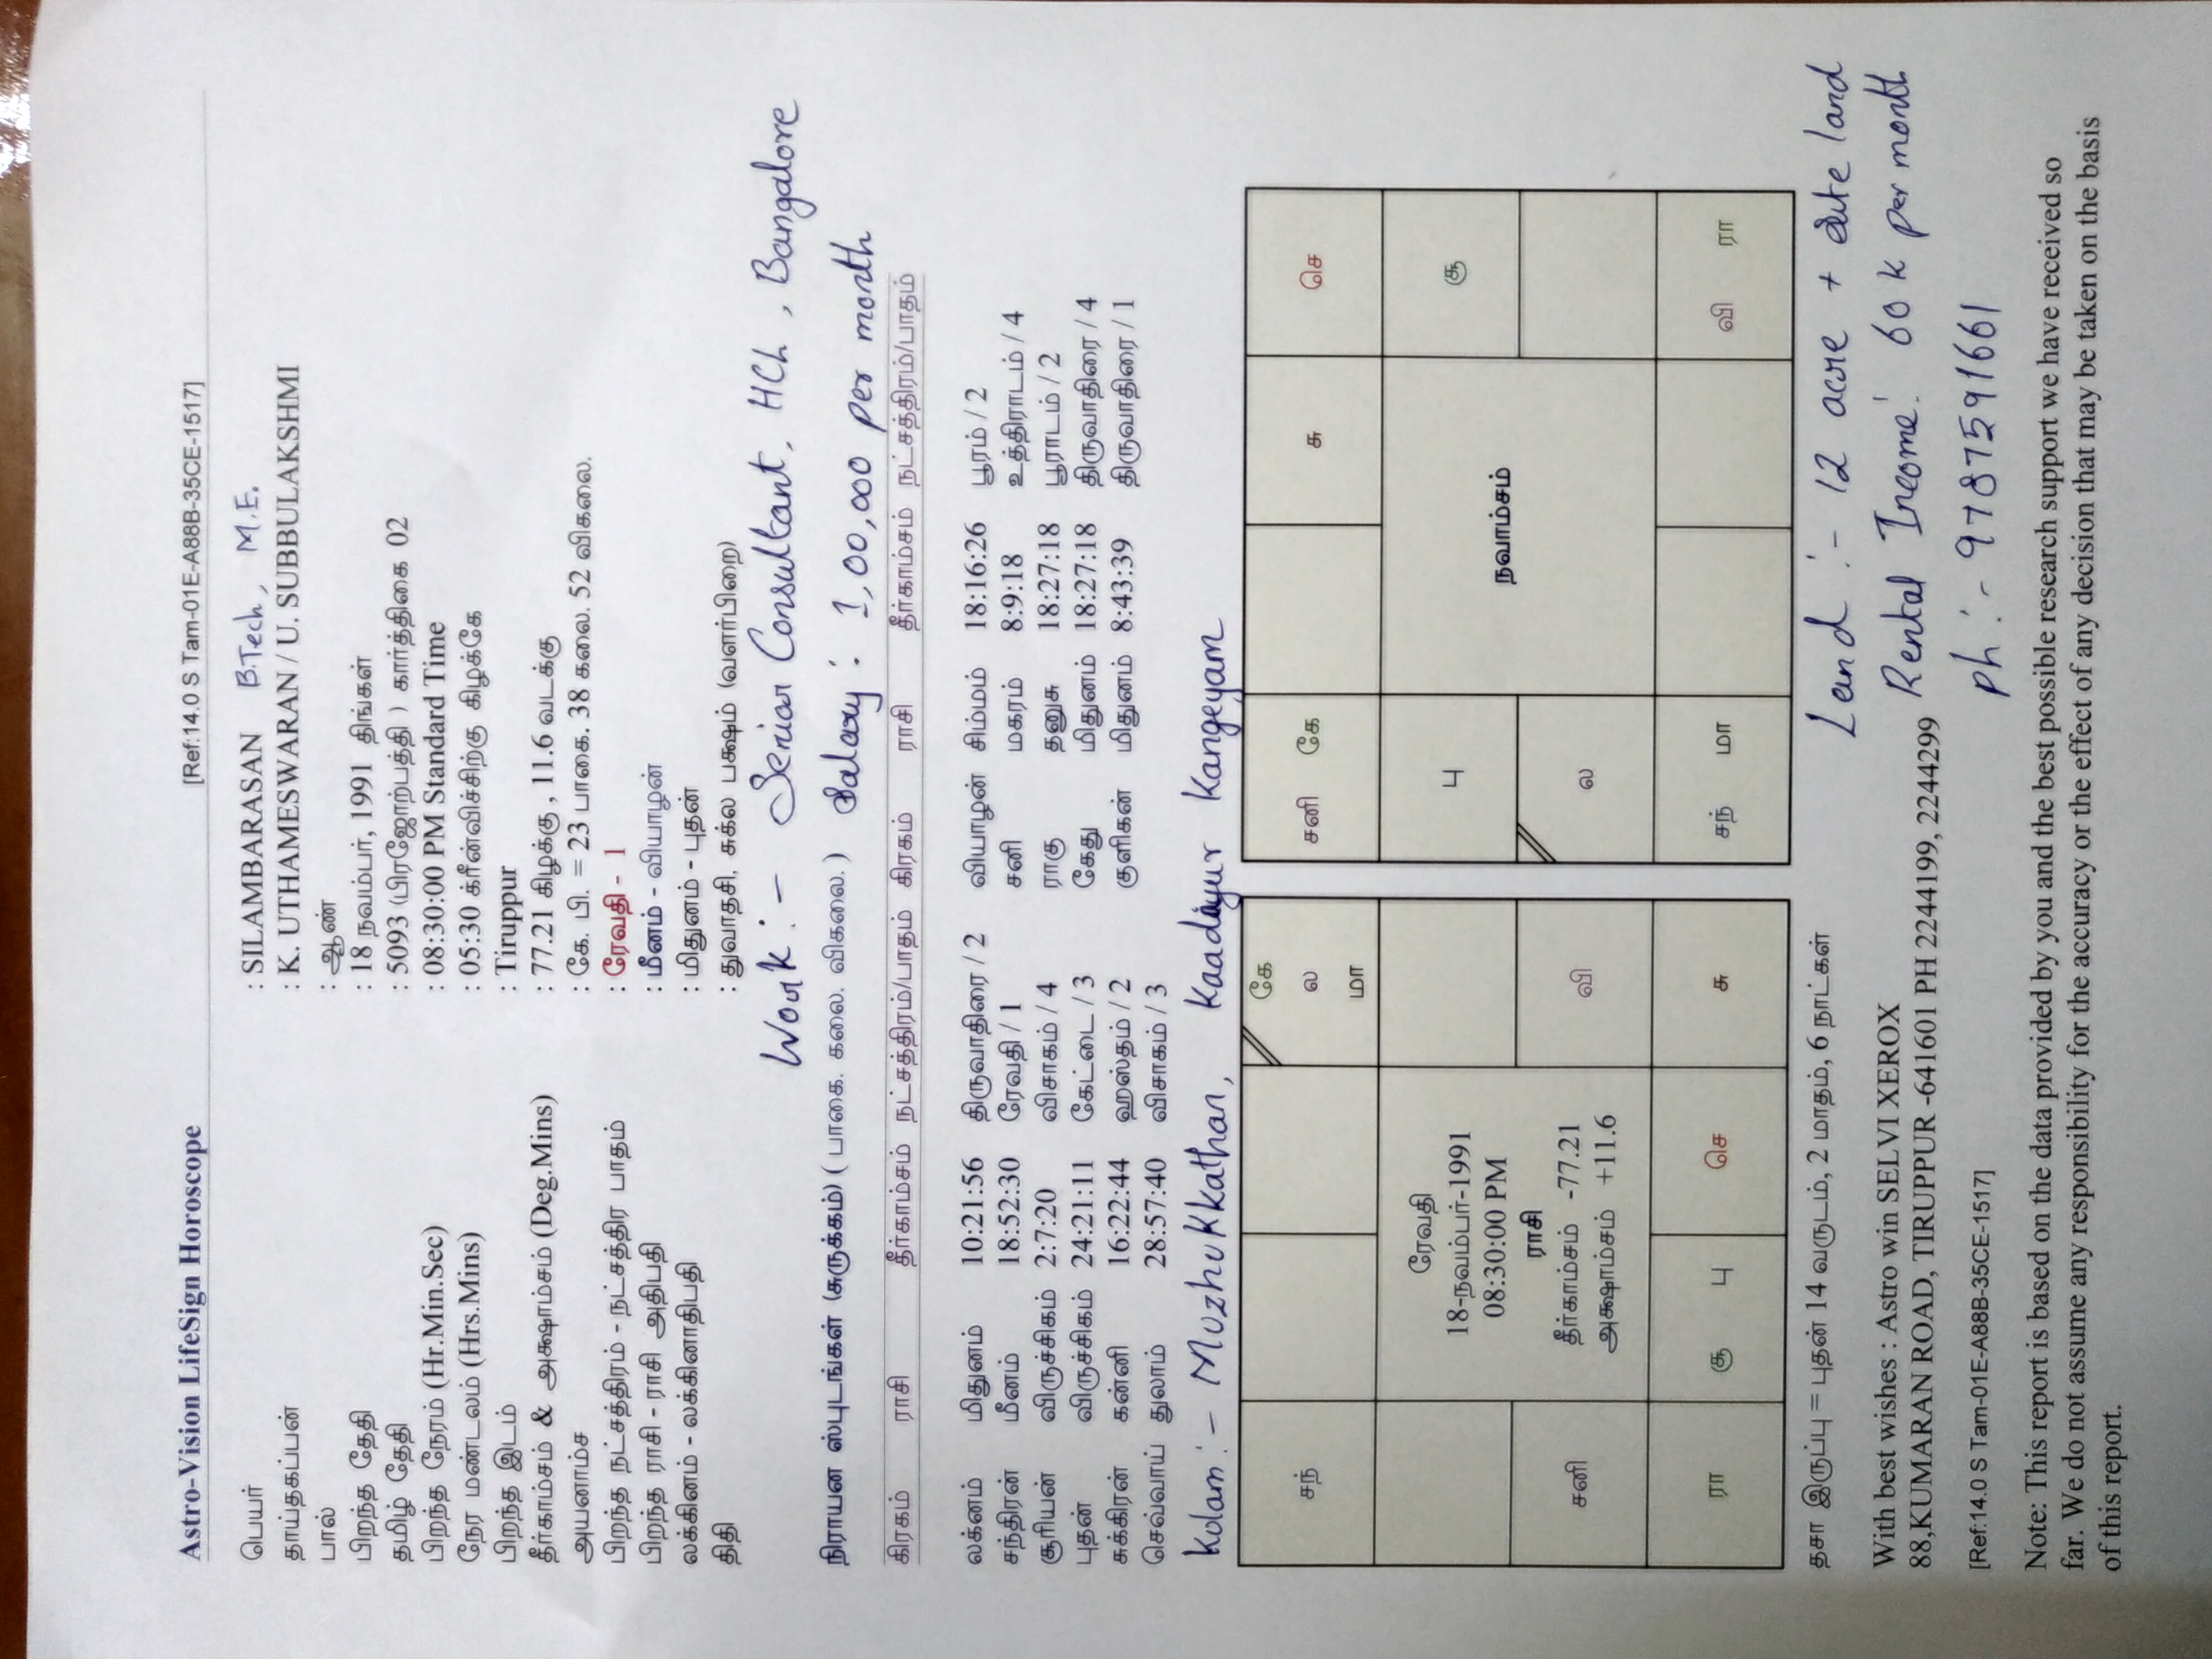 Astro-Vision LifeSign Horoscope [Ref:14.0 S Tam-01E-A8B-35CE-1517]
பெயர் : SILAMBARASAN B.Tech, M.E.
தாய்தகப்பன் : K. UTHAMESWARAN / U. SUBBULAKSHMI
பால் : ஆண்
பிறந்த தேதி : 18 நவம்பர், 1991 திங்கள்
தமிழ் தேதி : 5093 (பிரஜோற்பத்தி ) கார்த்திகை 02
பிறந்த நேரம் (Hr.Min.Sec) : 08:30:00 PM Standard Time
நேர மண்டலம் (Hrs.Mins) : 05:30 க்ரீன்விச்சிற்கு கிழக்கே
பிறந்த இடம் : Tiruppur
தீர்காம்சம் & அக்ஷாம்சம் (Deg.Mins) : 77.21 கிழக்கு , 11.6 வடக்கு
அயனாம்ச : கே. பி. = 23 பாகை. 38 கலை. 52 விகலை.
பிறந்த நட்சத்திரம் - நட்சத்திர பாதம் : ரேவதி - 1
பிறந்த ராசி - ராசி அதிபதி : மீனம் - வியாழன்
லக்கினம் - லக்கினாதிபதி : மிதுனம் - புதன்
திதி : துவாதசி, சுக்ல பக்ஷம் (வளர்பிறை)
Work :- Senior Consultant, HCL, Bangalore
நிராயன ஸ்புடங்கள் (சுருக்கம்) ( பாகை. கலை. விகலை. ) Salary : 1,00,000 per month
கிரகம் ராசி தீர்காம்சம் நட்சத்திரம்/பாதம் கிரகம் ராசி தீர்காம்சம் நட்சத்திரம்/பாதம்
லக்னம் மிதுனம் 10:21:56 திருவாதிரை / 2 வியாழன் சிம்மம் 18:16:26 பூரம் / 2
சந்திரன் மீனம் 18:52:30 ரேவதி / 1 சனி மகரம் 8:9:18 உத்திராடம் / 4
சூரியன் விருச்சிகம் 2:7:20 விசாகம் / 4 ராகு தனுசு 18:27:18 பூராடம் / 2
புதன் விருச்சிகம் 24:21:11 கேட்டை / 3 கேது மிதுனம் 18:27:18 திருவாதிரை / 4
சுக்கிரன் கன்னி 16:22:44 ஹஸ்தம் / 2 குளிகன் மிதுனம் 8:43:39 திருவாதிரை / 1
செவ்வாய் துலாம் 28:57:40 விசாகம் / 3
Kolam :- Muzhukkathan, Kaadaiyur Kangeyam
சந் கே ல மா
ரேவதி
18-நவம்பர்-1991
08:30:00 PM
ராசி
தீர்காம்சம் -77.21
அக்ஷாம்சம் +11.6
சனி வி
ரா கு பு செ சு
சனி கே சு செ
பு கு
நவாம்சம்
ல
சந் மா வி ரா
தசா இருப்பு = புதன் 14 வருடம், 2 மாதம், 6 நாட்கள்
Land :- 12 acre + Site land
With best wishes : Astro win SELVI XEROX
88,KUMARAN ROAD, TIRUPPUR -641601 PH 2244199, 2244299
Rental Income: 60 k per month
Ph :- 9787591661
[Ref:14.0 S Tam-01E-A8B-35CE-1517]
Note: This report is based on the data provided by you and the best possible research support we have received so
far. We do not assume any responsibility for the accuracy or the effect of any decision that may be taken on the basis
of this report.